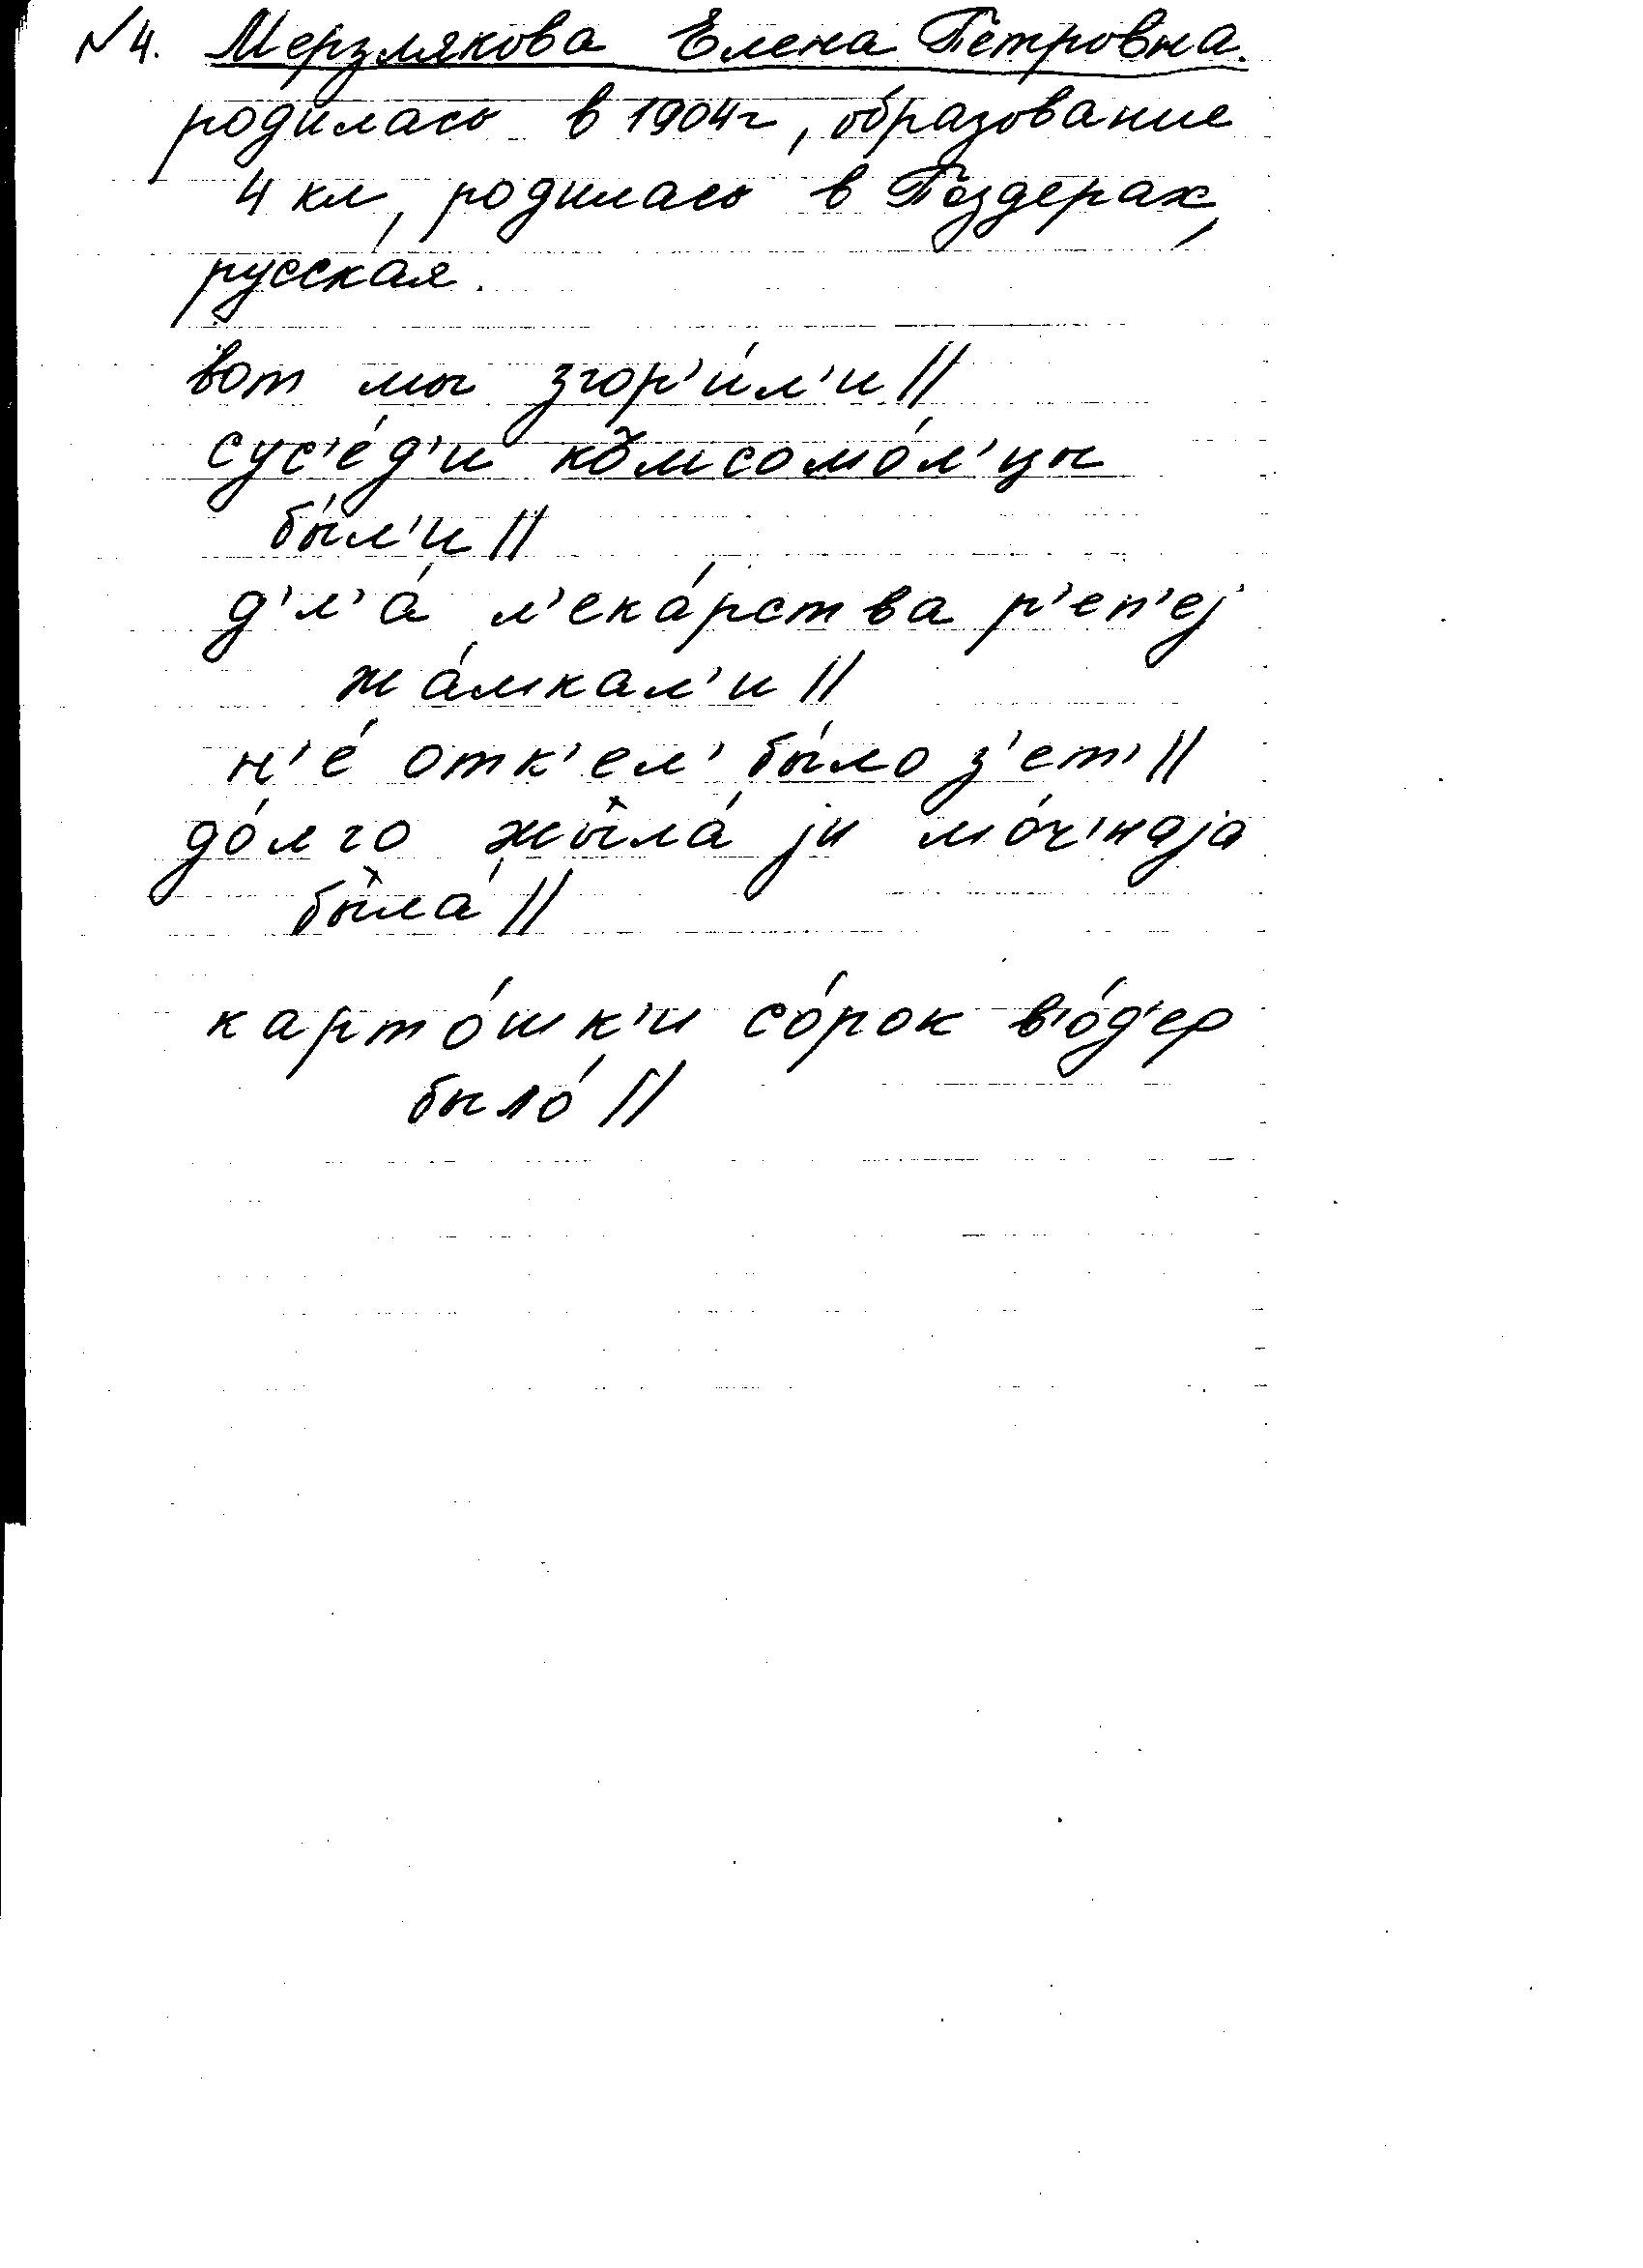 №4. Мерзлякова Елена Петровна.
родилась в 1904г, образование
4 кл, родилась в Поздерах,
русская.
вот мы згор'и́л'и //
сус'е́д'и комсомо́л'цы
бы́л'и //
д'л'а́ л'ека́рства р'еп'еј
жа́мкал'и //
н'е́ отк'ел' бы́ло з'ет' //
до́лго жы̀ла́ ји мо́ч'наја
бы̀ла́ //
карто́шк'и со́рок в'о́д'ер
было́ //